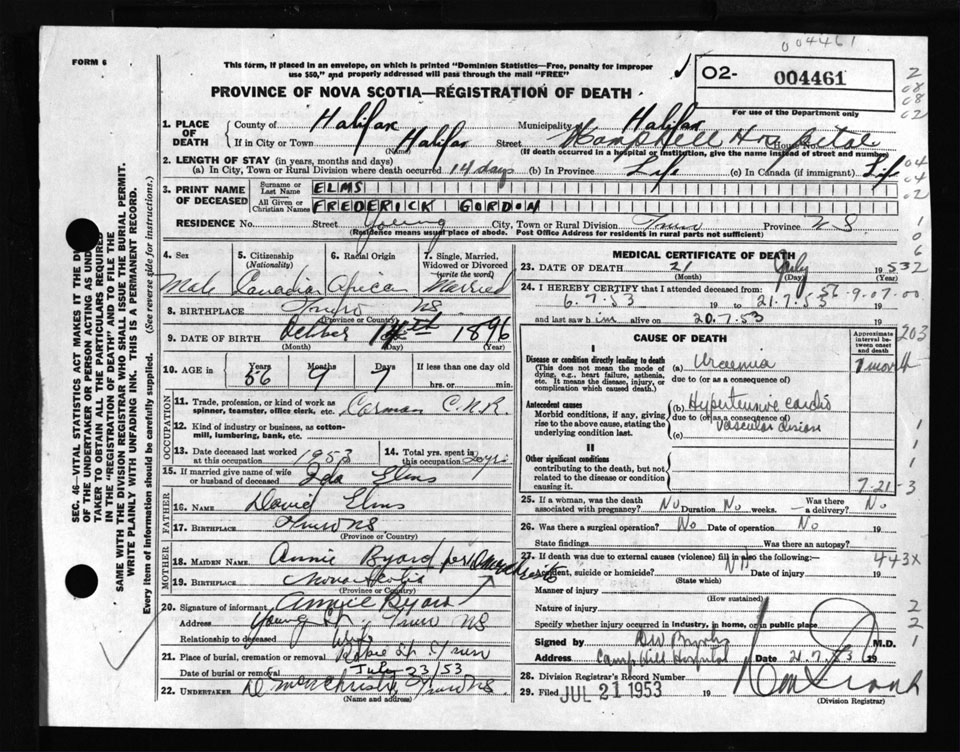 004461
FORM 6
This form, if placed in an envelope, on which is printed "Dominion Statistics—Free, penalty for improper
use $50," and properly addressed will pass through the mail "FREE"
PROVINCE OF NOVA SCOTIA—REGISTRATION OF DEATH
02- 004461
For use of the Department only
1. PLACE OF DEATH
County of Halifax Municipality Halifax
If in City or Town Halifax Street Camp Hill Hospital House No.
(Name) (If death occurred in a hospital or institution, give the name instead of street and number)
2. LENGTH OF STAY (in years, months and days)
(a) In City, Town or Rural Division where death occurred 14 days (b) In Province Life (c) In Canada (if immigrant) Life
3. PRINT NAME OF DECEASED
Surname or Last Name ELMS
All Given or Christian Names FREDERICK GORDON
RESIDENCE No. Street Young City, Town or Rural Division Truro Province NS
(Residence means usual place of abode. Post Office Address for residents in rural parts not sufficient)
4. Sex Male
5. Citizenship (Nationality) Canadian
6. Racial Origin African
7. Single, Married, Widowed or Divorced (write the word) Married
8. BIRTHPLACE Truro NS.
(Province or Country)
9. DATE OF BIRTH 14th 1896
(Month) (Day) (Year)
10. AGE in Years Months Days If less than one day
56 9 7 hrs. or min.
OCCUPATION
11. Trade, profession, or kind of work as
spinner, teamster, office clerk, etc. Carman C.N.R.
12. Kind of industry or business, as cotton-
mill, lumbering, bank, etc.
13. Date deceased last worked at this occupation 1953
14. Total yrs. spent in this occupation
15. If married give name of wife
or husband of deceased Ida Elms
FATHER
16. NAME David Elms
17. BIRTHPLACE Truro NS
(Province or Country)
MOTHER
18. MAIDEN NAME. Annie Byard per
19. BIRTHPLACE Nova Scotia
(Province or Country)
20. Signature of informant Annie Byard
Address Young St. Truro NS
Relationship to deceased Wife
21. Place of burial, cremation or removal Robie St. Truro
Date of burial or removal July 23/53
22. UNDERTAKER Truro NS.
(Name and address)
MEDICAL CERTIFICATE OF DEATH
23. DATE OF DEATH 21 July 1953
(Month) (Day) (Year)
24. I HEREBY CERTIFY that I attended deceased from:
6.7.53 19 to 21.7.53
and last saw him alive on 20.7.53 19
CAUSE OF DEATH
Approximate interval between onset and death
I
Disease or condition directly leading to death
(This does not mean the mode of dying, e.g., heart failure, asthenia, etc. It means the disease, injury, or complication which caused death.)
(a) Uraemia 1 month
due to (or as a consequence of)
Antecedent causes
Morbid conditions, if any, giving rise to the above cause, stating the underlying condition last.
(b) Hypertensive cardio
due to (or as a consequence of)
vascular disease
(c)
II
Other significant conditions
contributing to the death, but not related to the disease or condition causing it.
7-21-3
25. If a woman, was the death associated with pregnancy? No Duration No weeks. Was there — a delivery? No
26. Was there a surgical operation? No Date of operation No 19
State findings Was there an autopsy?
27. If death was due to external causes (violence) fill in also the following:— 443X
Accident, suicide or homicide? Date of injury 19
(State which)
Manner of injury
(How sustained)
Nature of injury
Specify whether injury occurred in industry, in home, or in public place
Signed by M.D.
Address Camp Hill Hospital Date 21.7.53 19
28. Division Registrar's Record Number
29. Filed JUL 21 1953 19
(Division Registrar)
SEC. 46—VITAL STATISTICS ACT MAKES IT THE DUTY
OF THE UNDERTAKER OR PERSON ACTING AS UNDER-
TAKER TO OBTAIN ALL THE PARTICULARS REQUIRED
IN THE "REGISTRATION OF DEATH" AND TO FILE THE
SAME WITH THE DIVISION REGISTRAR WHO SHALL ISSUE THE BURIAL PERMIT.
WRITE PLAINLY WITH UNFADING INK. THIS IS A PERMANENT RECORD.
Every item of information should be carefully supplied. (See reverse side for instructions.)